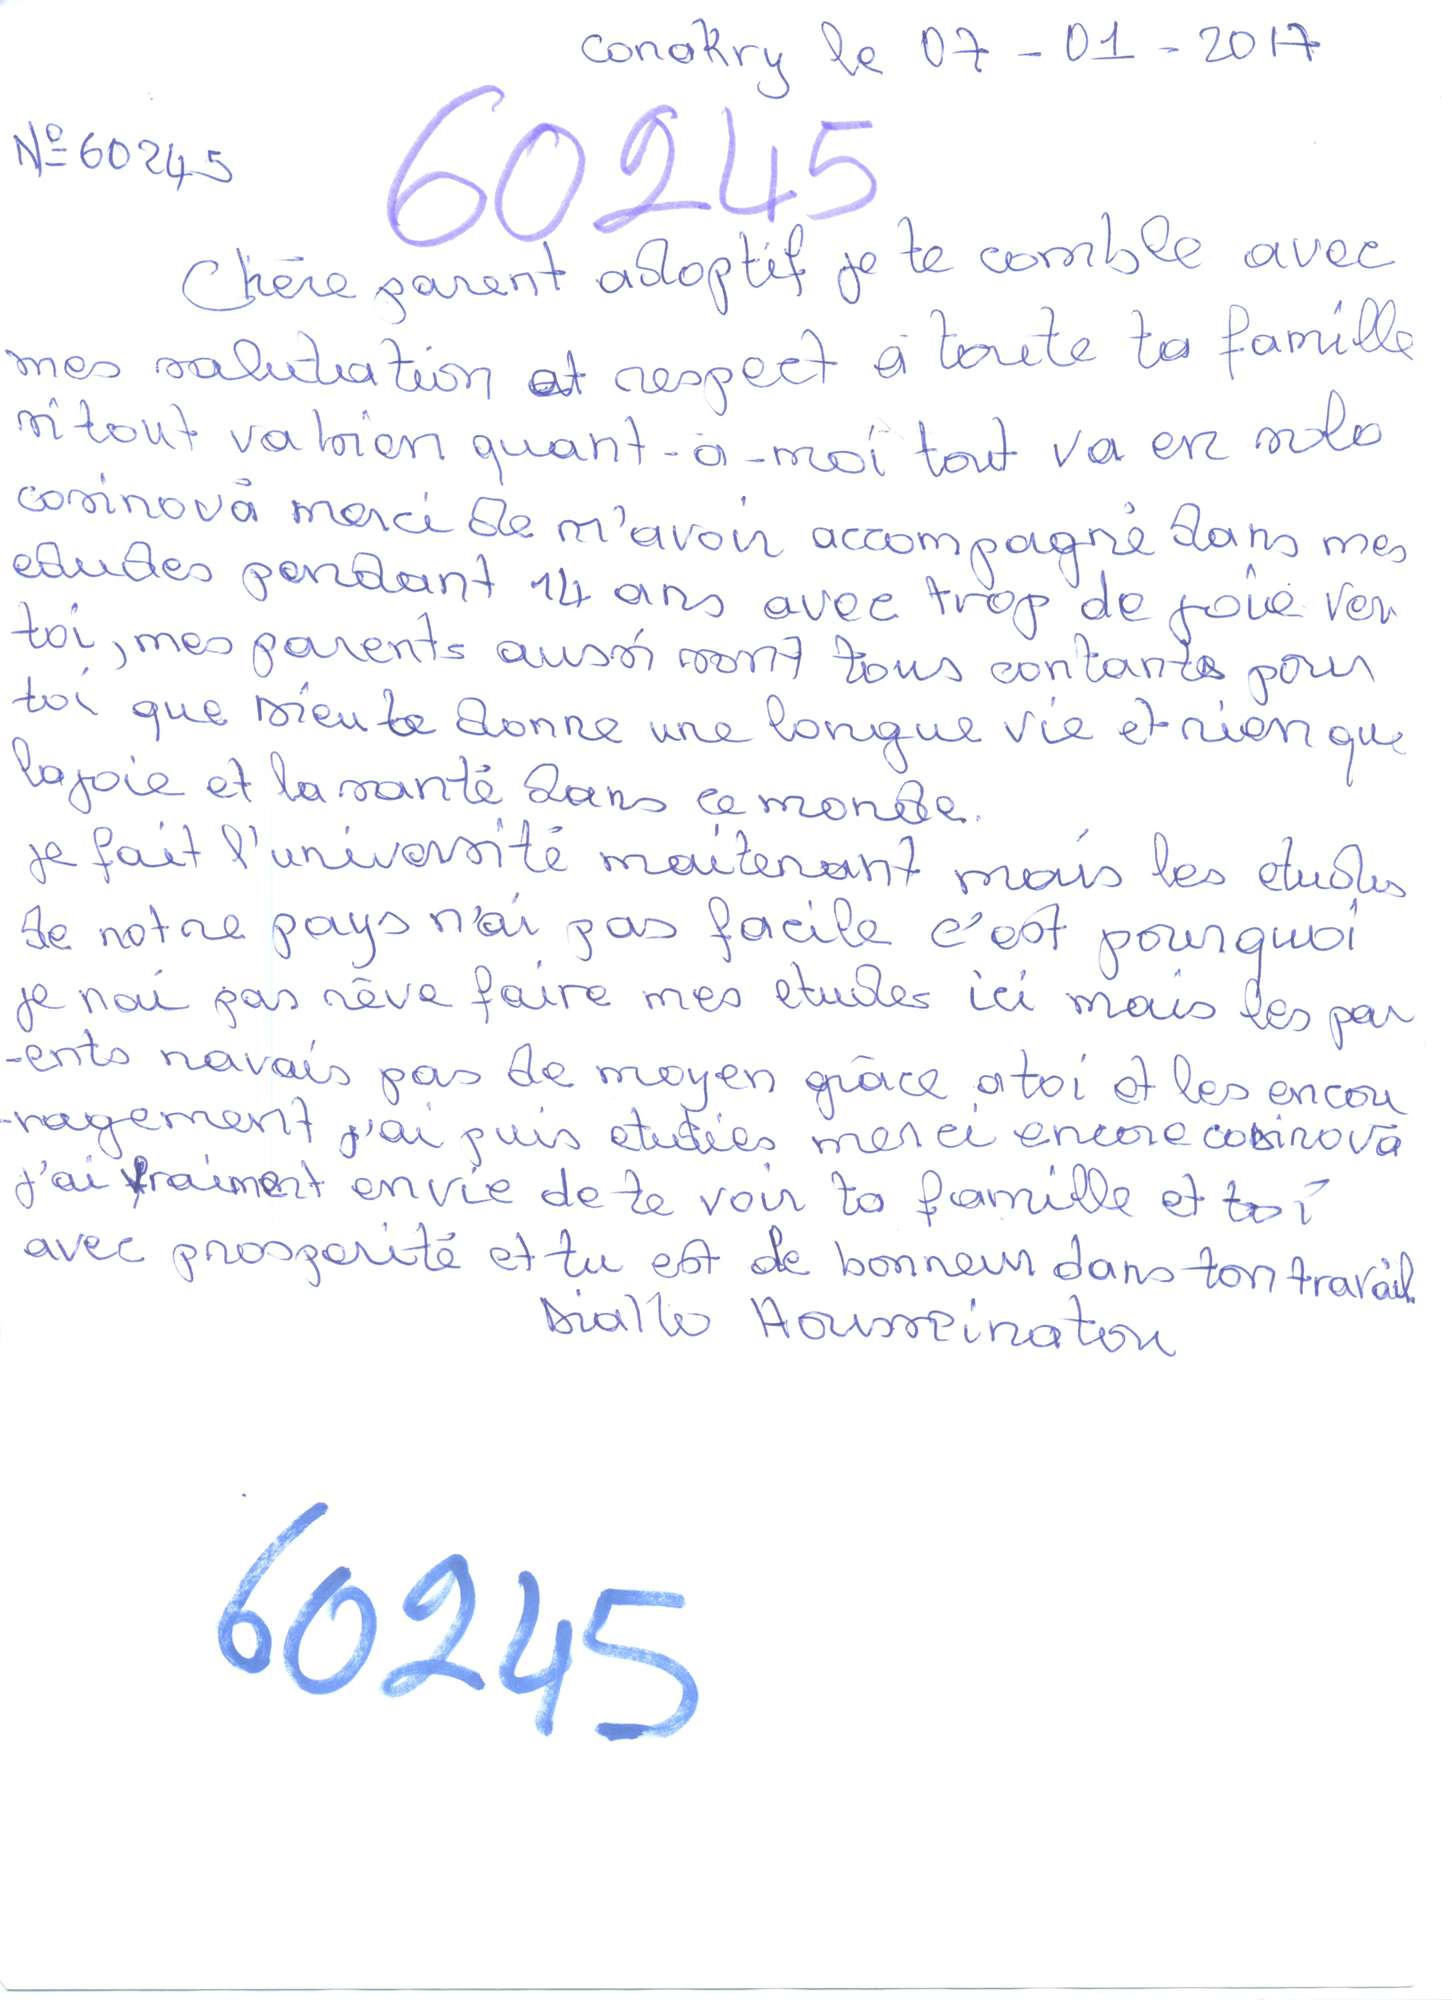 Conakry le 07 - 01 - 2017
Nº 60245
60245
Chère parent adoptif je te comble avec
mes salutuation et respect à toute ta famille
si tout va bien quant-à-moi tout va en solo
cosinova merci de m'avoir accompagné dans mes
etudes pendant 14 ans avec trop de joie ver
toi, mes parents aussi sont tous contants pour
toi que Dieu te donne une longue vie et rien que
la joie et la santé dans ce monde.
je fait l'université maitenant mais les etudes
de notre pays n'ai pas facile c'est pourquoi
je nai pas rêve faire mes etudes ici mais les par
-ents navais pas de moyen grâce a toi et les encou
-ragement j'ai puis etudies merci encore cosinova
j'ai vraiment envie de te voir ta famille et toi
avec prosperité et tu est de bonneur dans ton travail.
Diallo Housseinatou
60245